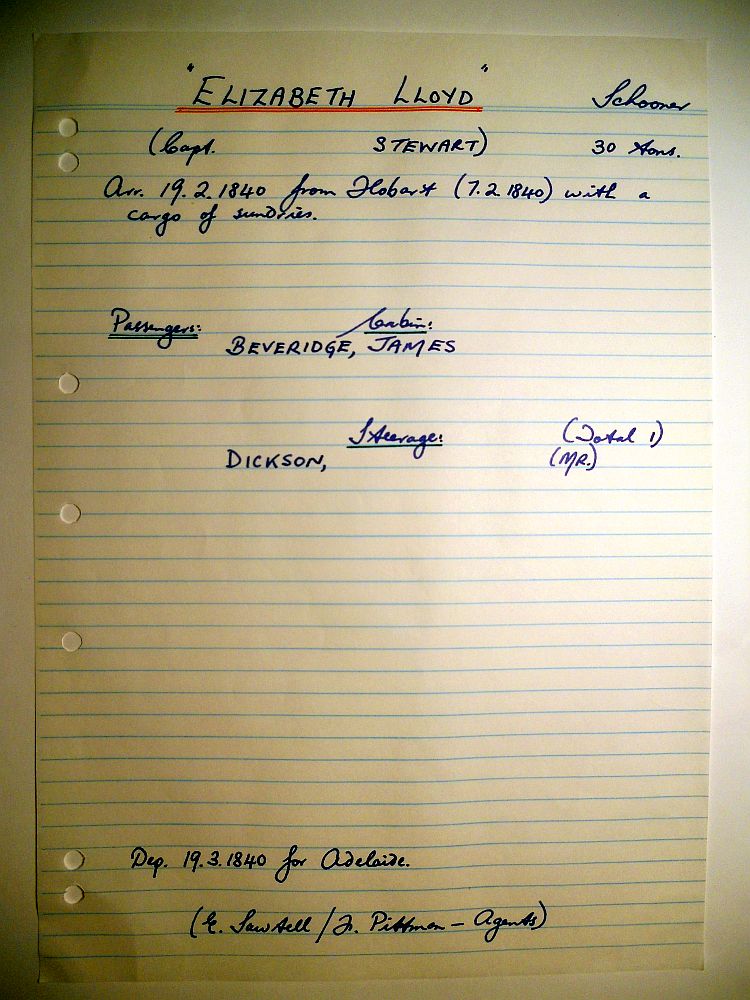 "ELIZABETH LLOYD" Schooner
(Capt. STEWART) 30 tons.
Arr. 19.2.1840 from Hobart (7.2.1840) with a
cargo of sundries.
Passengers: Cabin:
BEVERIDGE, JAMES
Steerage: (Total 1)
DICKSON, (MR.)
Dep. 19.3.1840 for Adelaide.
(E. Sawtell / J. Pittman - Agents)